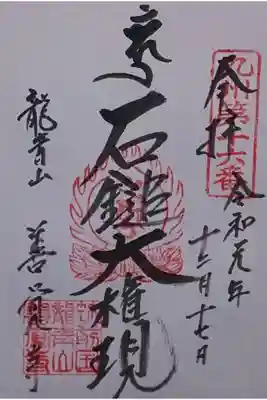 九州第十六番
奉拝
令和元年
十二月十七日
石鎚大権現
龍青山 善覚寺